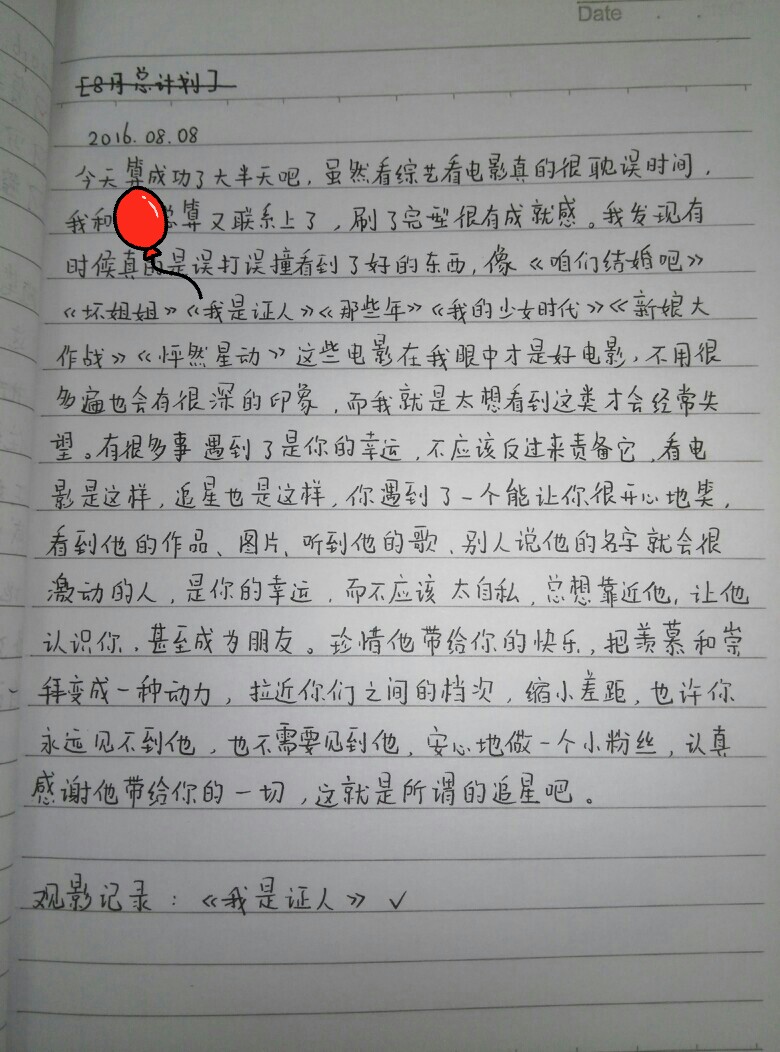 Date
[8月总计划]
2016.08.08
今天算成功了大半天吧，虽然看综艺看电影真的很耽误时间，
我和 总算又联系上了，刷了完型很有成就感。我发现有
时候真的是误打误撞看到了好的东西，像《咱们结婚吧》
《坏姐姐》《我是证人》《那些年》《我的少女时代》《新娘大
作战》《怦然星动》这些电影在我眼中才是好电影，不用很
多遍也会有很深的印象，而我就是太想看到这类才会经常失
望。有很多事遇到了是你的幸运，不应该反过来责备它，看电
影是这样，追星也是这样，你遇到了一个能让你很开心地笑，
看到他的作品、图片、听到他的歌、别人说他的名字就会很
激动的人，是你的幸运，而不应该太自私，总想靠近他，让他
认识你，甚至成为朋友。珍惜他带给你的快乐，把羡慕和崇
拜变成一种动力，拉近你们之间的档次，缩小差距，也许你
永远见不到他，也不需要见到他，安心地做一个小粉丝，认真
感谢他带给你的一切，这就是所谓的追星吧。
观影记录：《我是证人》✓